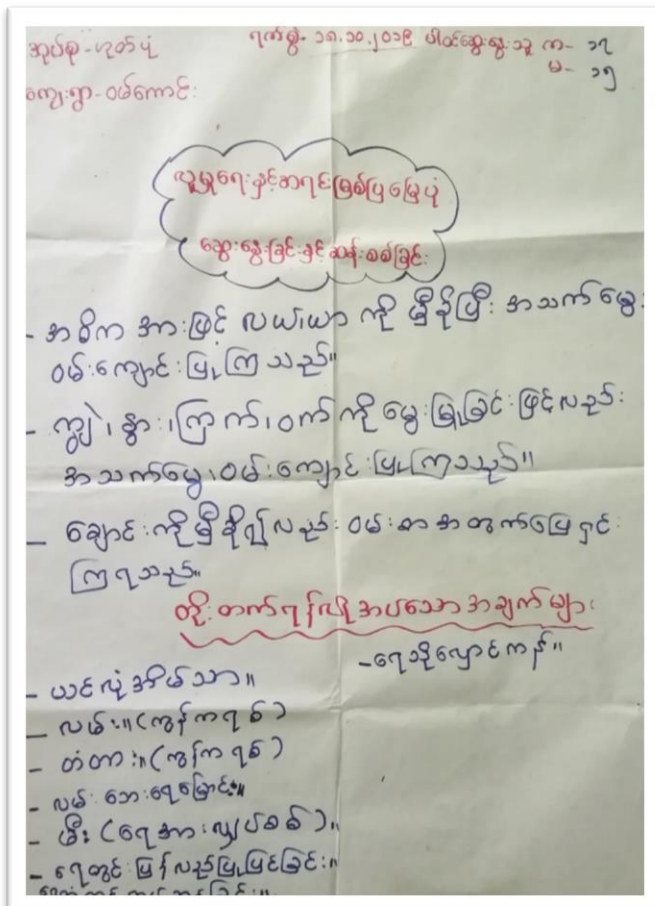 အုပ်စု-ဟုတ်ပုံ ရက်စွဲ- ၁၈.၁၀.၂၀၁၉ ပါဝင်ဆွေးနွေးသူ က- ၁၇
မ- ၁၅
ကျေးရွာ-ဝမ်ကောင်း
လူမှုရေးနှင့်အရင်းမြစ်ပြမြေပုံ
ဆွေးနွေးခြင်းနှင့်ဆန်းစစ်ခြင်း
- အဓိက အားဖြင့် လယ်ယာ ကို မှီခိုပြီး အသက်မွေး
ဝမ်းကျောင်းပြုကြသည်။
- ကျွဲ၊ နွား၊ ကြက်၊ ဝက် ကို မွေးမြူခြင်းဖြင့်လည်း
အသက်မွေး၊ ဝမ်းကျောင်းပြုကြသည်။
- ချောင်းကိုမှီခို၍လည်း ဝမ်းစာအတွက်ဖြေရှင်း
ကြရသည်။
တိုးတက်ရန်လိုအပ်သောအချက်များ
-ရေသိုလှောင်ကန်။
- ယင်လုံအိမ်သာ။
- လမ်း။ (ကွန်ကရစ်)
- တံတား။ (ကွန်ကရစ်)
- လမ်းဘေးရေမြောင်း။
- မီး (ရေအားလျှပ်စစ်)။
- ရေတွင်းပြန်လည်ပြုပြင်ခြင်း။